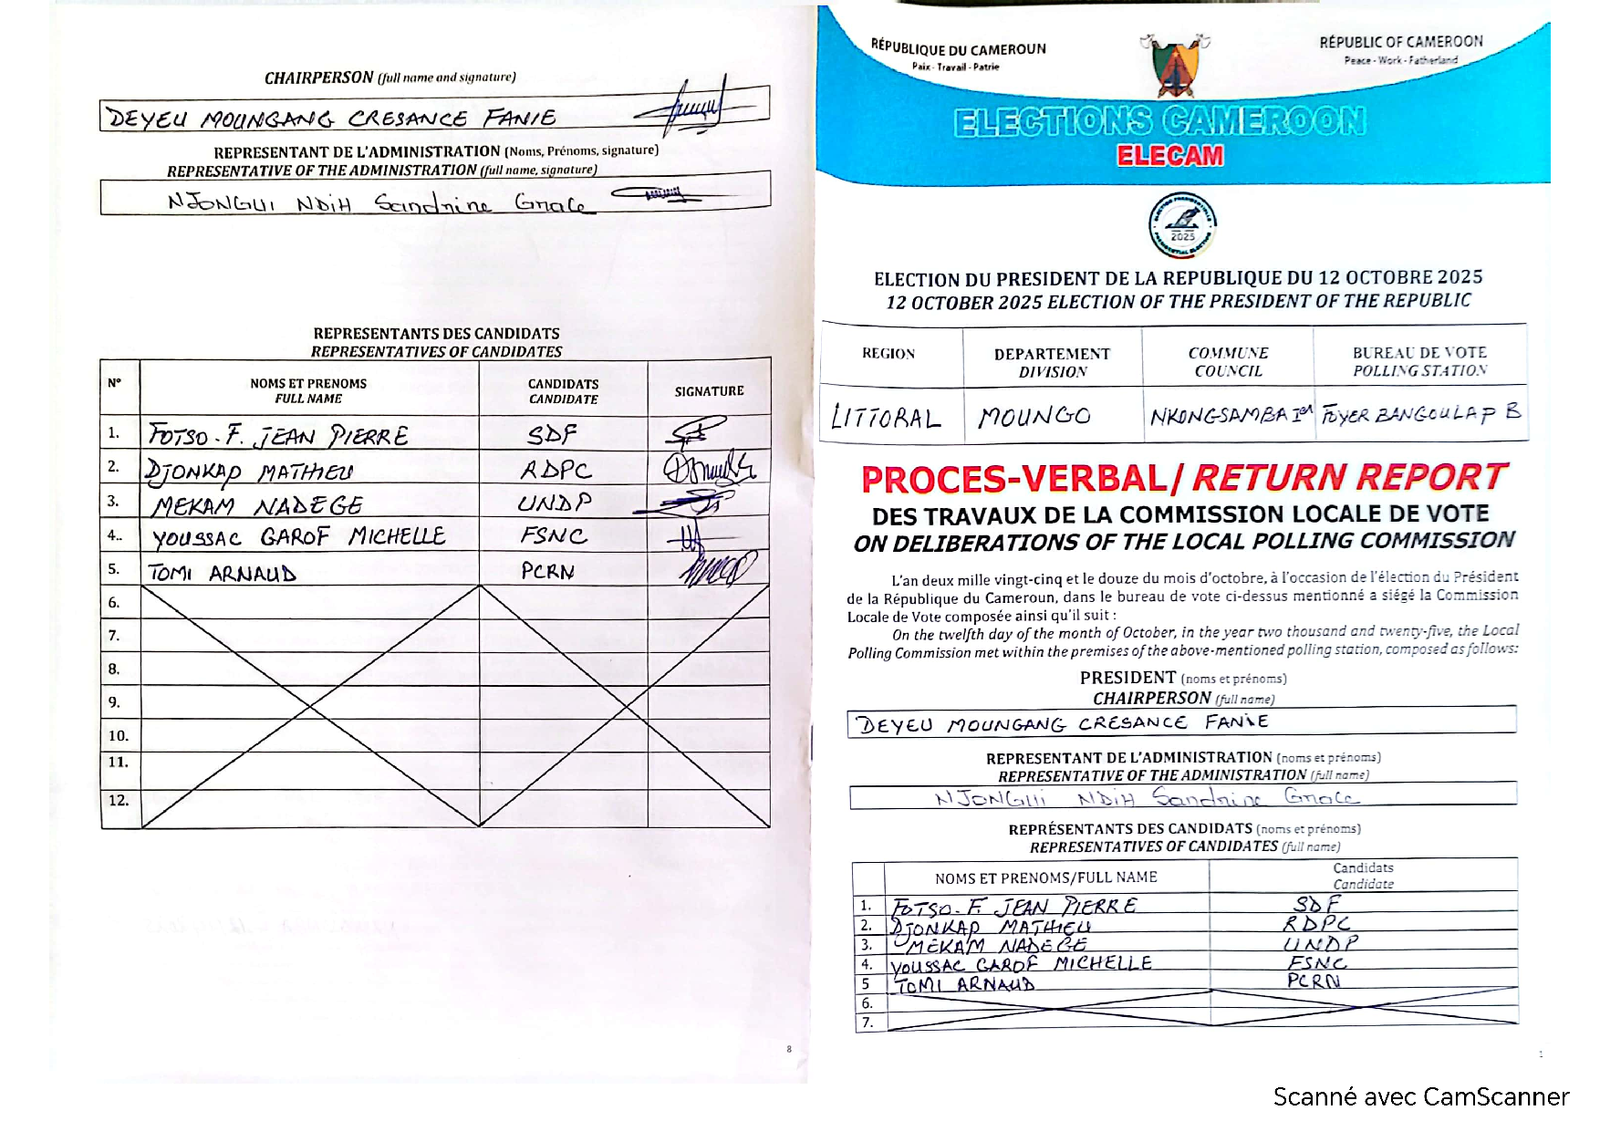 CHAIRPERSON (full name and signature)
DEYEU MOUNGANG CRESANCE FANIE
REPRESENTANT DE L'ADMINISTRATION (Noms, Prénoms, signature)
REPRESENTATIVE OF THE ADMINISTRATION (full name, signature)
NJONGUI NDIH Sandrine Grace
REPRESENTANTS DES CANDIDATS
REPRESENTATIVES OF CANDIDATES
N° NOMS ET PRENOMS FULL NAME CANDIDATS CANDIDATE SIGNATURE
1. FOTSO.F. JEAN PIERRE SDF
2. DJONKAP MATHIEU RDPC
3. MEKAM NADEGE UNDP
4.. YOUSSAC GAROF MICHELLE FSNC
5. TOMI ARNAUD PCRN
6.
7.
8.
9.
10.
11.
12.
8
RÉPUBLIQUE DU CAMEROUN
Paix - Travail - Patrie
RÉPUBLIC OF CAMEROON
Peace - Work - Fatherland
ELECTIONS CAMEROON
ELECAM
2025
ELECTION DU PRESIDENT DE LA REPUBLIQUE DU 12 OCTOBRE 2025
12 OCTOBER 2025 ELECTION OF THE PRESIDENT OF THE REPUBLIC
REGION DEPARTEMENT DIVISION COMMUNE COUNCIL BUREAU DE VOTE POLLING STATION
LITTORAL MOUNGO NKONGSAMBA Ier FOYER BANGOULAP B
PROCES-VERBAL/ RETURN REPORT
DES TRAVAUX DE LA COMMISSION LOCALE DE VOTE
ON DELIBERATIONS OF THE LOCAL POLLING COMMISSION
L'an deux mille vingt-cinq et le douze du mois d'octobre, à l'occasion de l'élection du Président
de la République du Cameroun, dans le bureau de vote ci-dessus mentionné a siégé la Commission
Locale de Vote composée ainsi qu'il suit :
On the twelfth day of the month of October, in the year two thousand and twenty-five, the Local
Polling Commission met within the premises of the above-mentioned polling station, composed as follows:
PRESIDENT (noms et prénoms)
CHAIRPERSON (full name)
DEYEU MOUNGANG CRESANCE FANIE
REPRESENTANT DE L'ADMINISTRATION (noms et prénoms)
REPRESENTATIVE OF THE ADMINISTRATION (full name)
NJONGUI NDIH Sandrine Grace
REPRÉSENTANTS DES CANDIDATS (noms et prénoms)
REPRESENTATIVES OF CANDIDATES (full name)
NOMS ET PRENOMS/FULL NAME Candidats Candidate
1. FOTSO.F. JEAN PIERRE SDF
2. DJONKAP MATHIEU RDPC
3. MEKAM NADEGE UNDP
4. YOUSSAC GAROF MICHELLE FSNC
5 TOMI ARNAUD PCRN
6.
7.
1
Scanné avec CamScanner